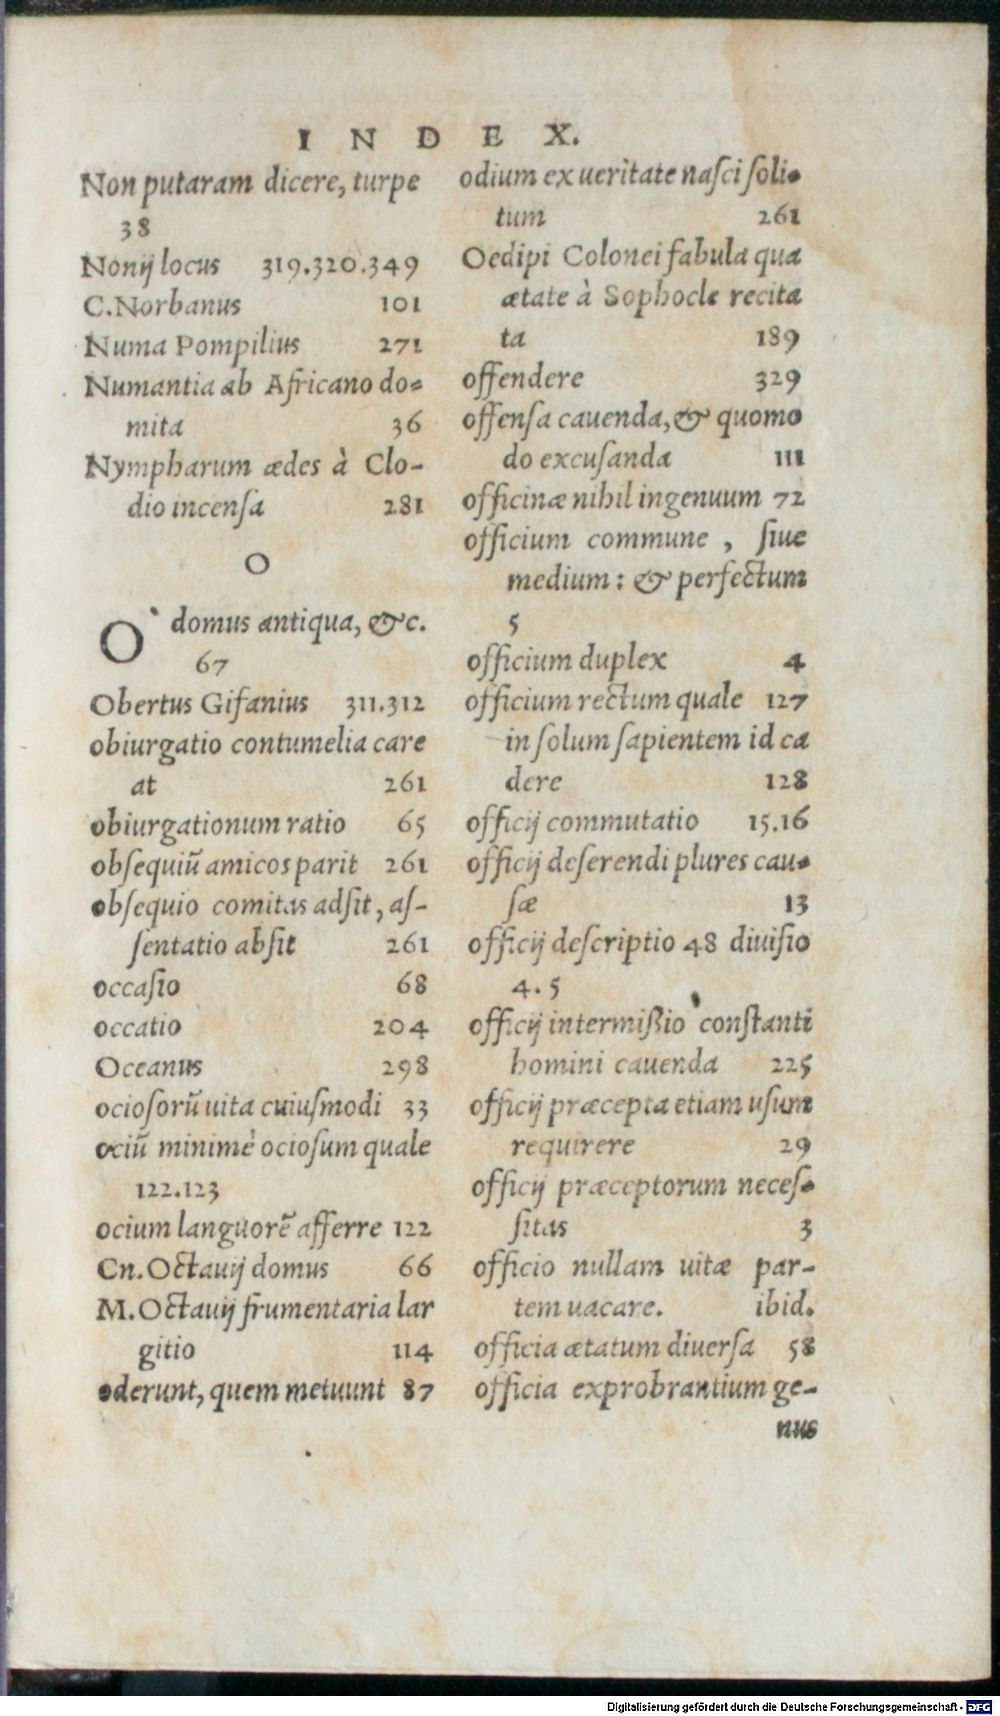 INDEX.
Non putaram dicere, turpe
38
Nonij locus 319.320.349
C. Norbanus 101
Numa Pompilius 271
Numantia ab Africano do=
mita 36
Nympharum ædes à Clo-
dio incensa 281
O
O' domus antiqua, &c.
67
Obertus Gifanius 311.312
obiurgatio contumelia care
at 261
obiurgationum ratio 65
obſequiũ amicos parit 261
obſequio comitas adſit, aſ-
ſentatio abſit 261
occaſio 68
occatio 204
Oceanus 298
ocioſorũ uita cuiuſmodi 33
ociũ minimè ocioſum quale
122.123
ocium languorẽ afferre 122
Cn. Octauij domus 66
M. Octauij frumentaria lar
gitio 114
oderunt, quem metuunt 87
odium ex ueritate naſci ſoli-
tum 261
Oedipi Colonei fabula qua
ætate à Sophocle recita
ta 189
offendere 329
offenſa cauenda, & quomo
do excuſanda 111
officinæ nihil ingenuum 72
officium commune, ſiue
medium: & perfectum
5
officium duplex 4
officium rectum quale 127
in ſolum ſapientem id ca
dere 128
officij commutatio 15.16
officij deſerendi plures cau-
ſæ 13
officij deſcriptio 48 diuiſio
4.5
officij intermißio conſtanti
homini cauenda 225
officij præcepta etiam uſum
requirere 29
officij præceptorum neceſ-
ſitas 3
officio nullam uitæ par-
tem uacare. ibid.
officia ætatum diuerſa 58
officia exprobrantium ge-
nus
Digitalisierung gefördert durch die Deutsche Forschungsgemeinschaft - DFG